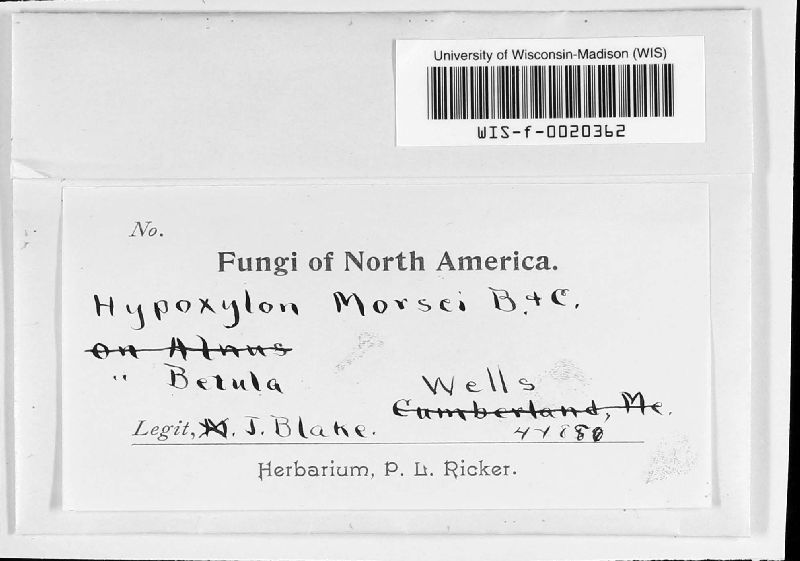 University of Wisconsin-Madison (WIS)
WIS-f-0020362
No.
Fungi of North America.
Hypoxylon Morsei B. + C.
on Alnus
" Betula
Wells
Cumberland, Me.
Legit, J. Blake.
Herbarium, P. L. Ricker.